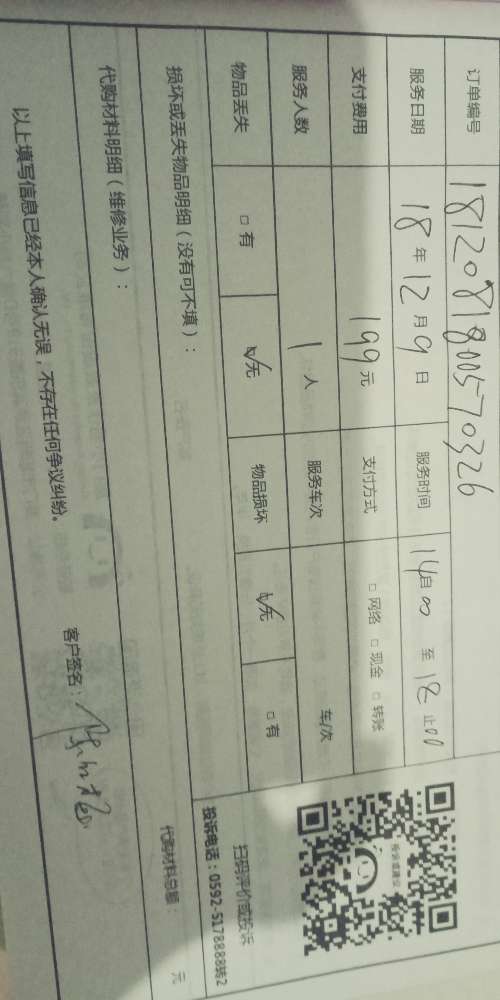 订单编号 1812081800570326
服务日期 18年12月9日 服务时间 14自00 至18止00
支付费用 199元 支付方式 □网络 □现金 □转账
服务人数 1人 服务车次 车/次
物品丢失 □有 ☑无 物品损坏 ☑无 □有
损坏或丢失物品明细（没有可不填）：
代购材料明细（维修业务）：
代购材料总额： 元
以上填写信息已经本人确认无误，不存在任何争议纠纷。
客户签名：
投诉或建议
扫码评价或投诉
投诉电话：0592-5178888转2